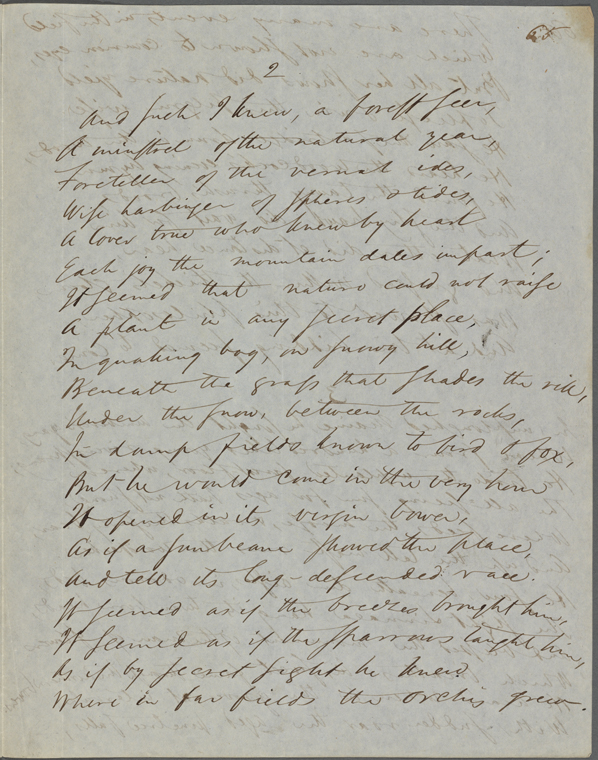 2
And such I knew, a forest seer,
A minstrel of the natural year,
Foreteller of the vernal ides,
Wise harbinger of spheres & tides,
A lover true who knew by heart
Each joy the mountain dales impart;
It seemed that nature could not raise
A plant in any secret place,
In quaking bog, on snowy hill,
Beneath the grass that shades the rill,
Under the snow, between the rocks,
In damp fields known to bird & fox,
But he would come in the very hour
It opened in its virgin bower,
As if a sunbeam showed the place,
And tell its long-descended race.
It seemed as if the breezes brought him,
It seemed as if the sparrows taught him,
As if by secret sight he knew
Where in far fields the orchis grew.